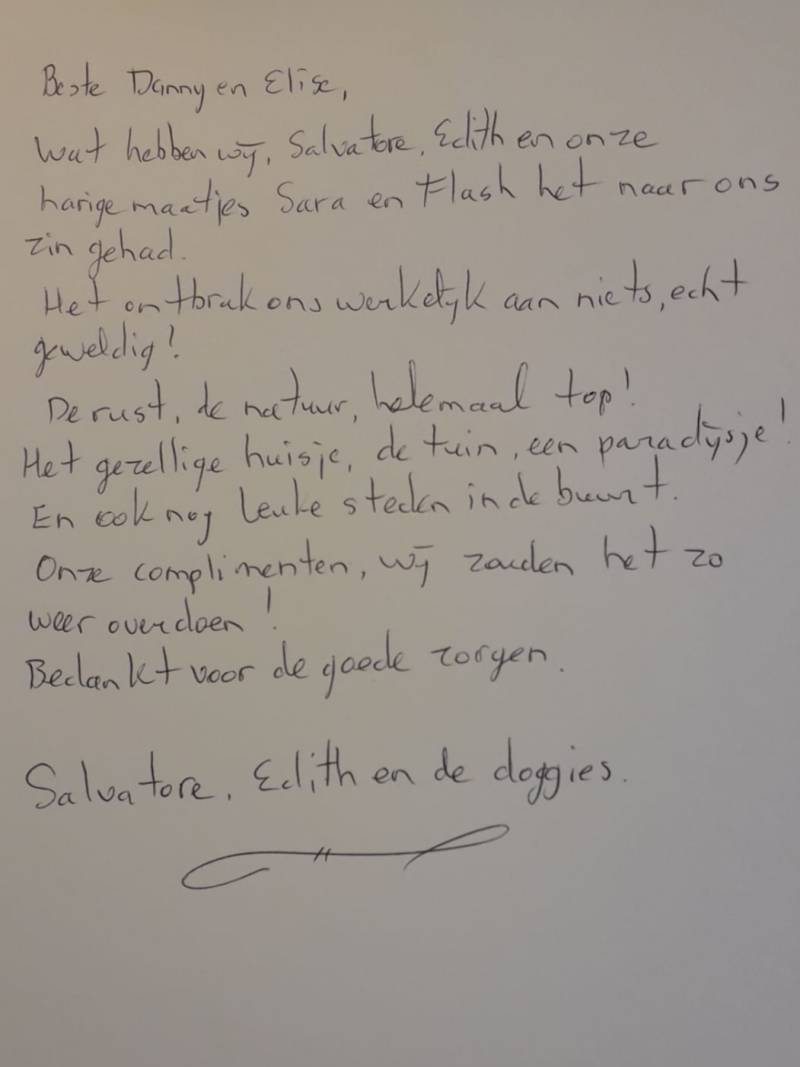 Beste Danny en Elise,
Wat hebben wij, Salvatore, Edith en onze
harige maatjes Sara en Flash het naar ons
zin gehad.
Het ontbrak ons werkelijk aan niets, echt
geweldig!
De rust, de natuur, helemaal top!
Het gezellige huisje, de tuin, een paradijsje!
En ook nog leuke steden in de buurt.
Onze complimenten, wij zouden het zo
weer overdoen!
Bedankt voor de goede zorgen.
Salvatore, Edith en de doggies.